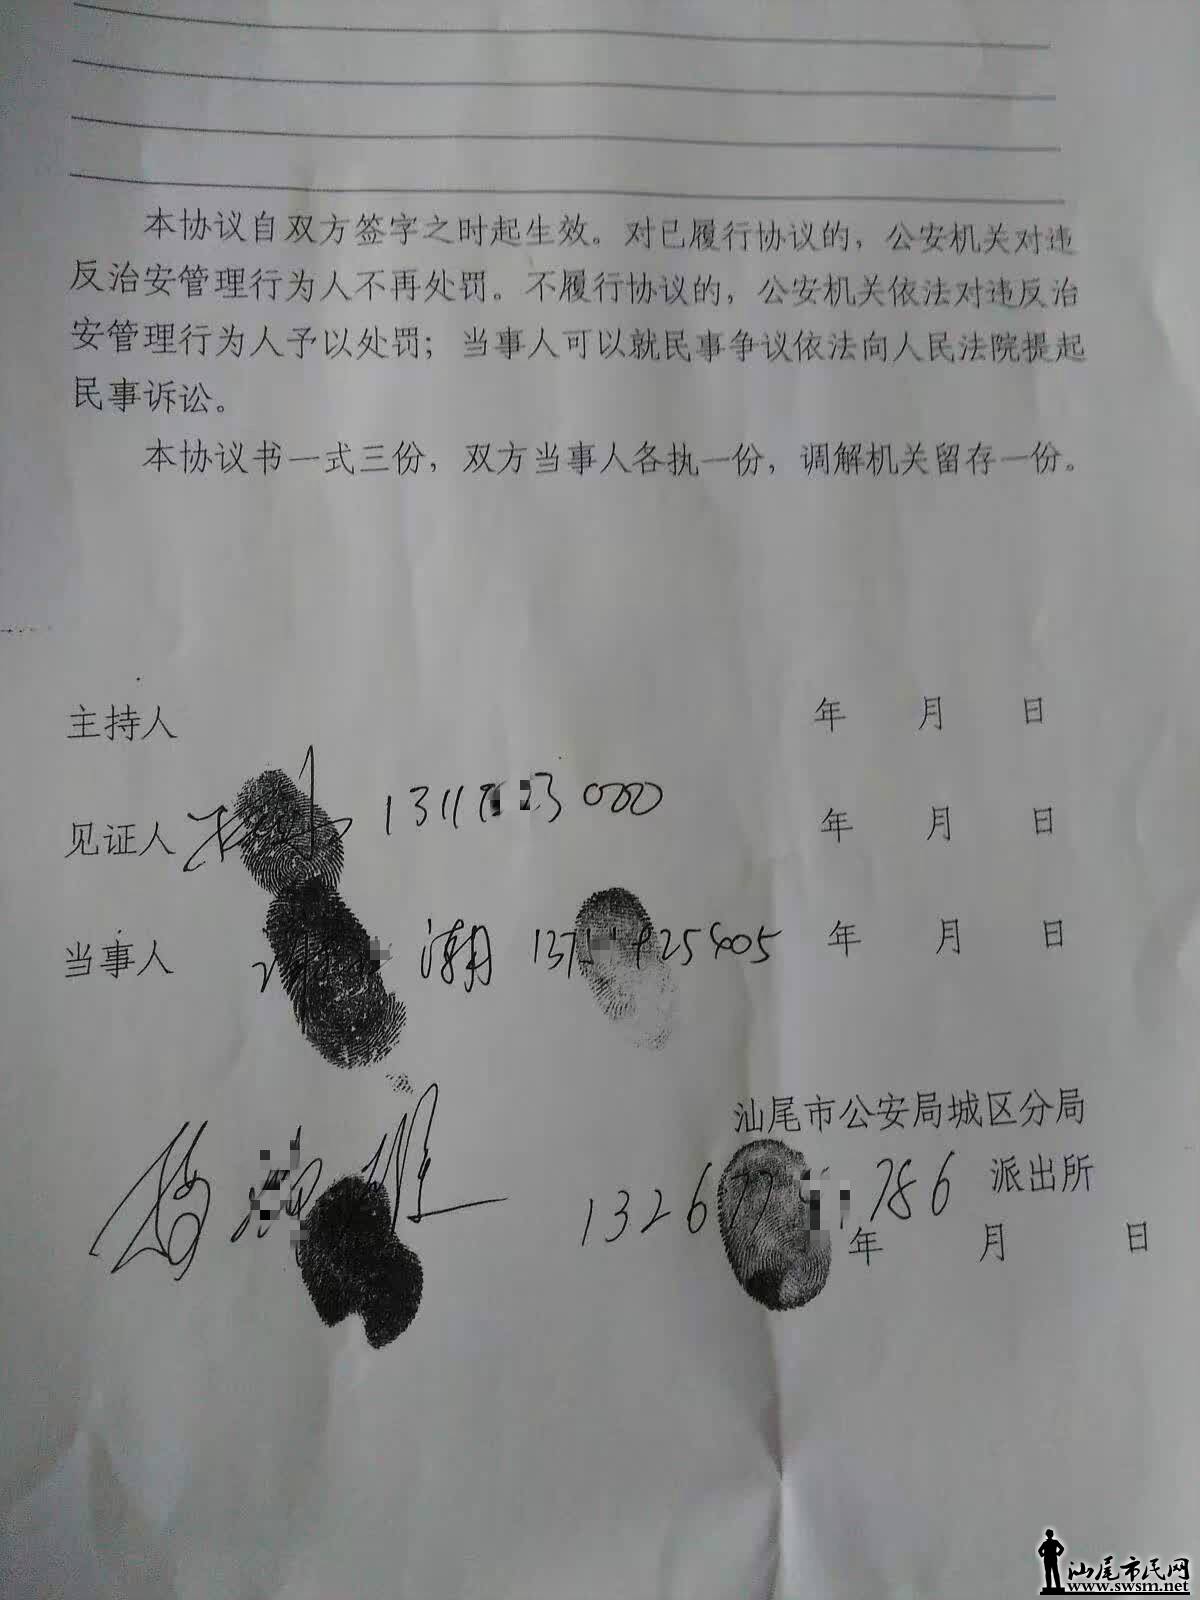 本协议自双方签字之时起生效。对已履行协议的，公安机关对违
反治安管理行为人不再处罚。不履行协议的，公安机关依法对违反治
安管理行为人予以处罚；当事人可以就民事争议依法向人民法院提起
民事诉讼。
本协议书一式三份，双方当事人各执一份，调解机关留存一份。
主持人 年 月 日
见证人 年 月 日
当事人 潮 年 月 日
汕尾市公安局城区分局
派出所
年 月 日
汕尾市民网
www.swsm.net